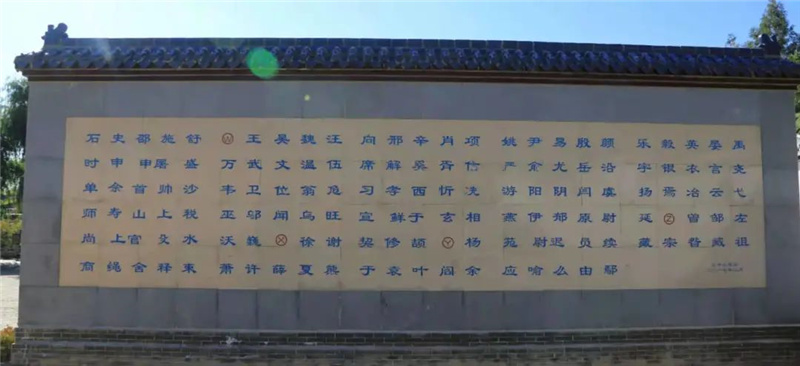 石 史 邵 施 舒
时 申 申屠 盛
单 佘 首 帅 沙
师 寿 山 上 税
尚 上官 殳 水
商 绳 舍 释 束
W 王 吴 魏 汪
万 武 文 温 伍
韦 卫 位 翁 危
巫 邬 闻 乌 旺
沃 巍 X 徐 谢
萧 许 薛 夏 熊
向 邢 辛 肖 项
席 解 奚 胥 信
习 孝 西 忻 冼
宣 鲜于 玄 相
契 修 颉 Y 杨
于 袁 叶 阎 余
姚 尹 易 殷 颜
严 俞 尤 岳
游 阳 阴 闫 虞
燕 伊 郁 原 尉
苑 尉迟 员
应 喻 么 由 鄢
乐 英 晏 禹
宇 银 衣 言 尧
扬 焉 冶 云 弋
延 Z 曾 邹 左
宗 昝 臧 祖